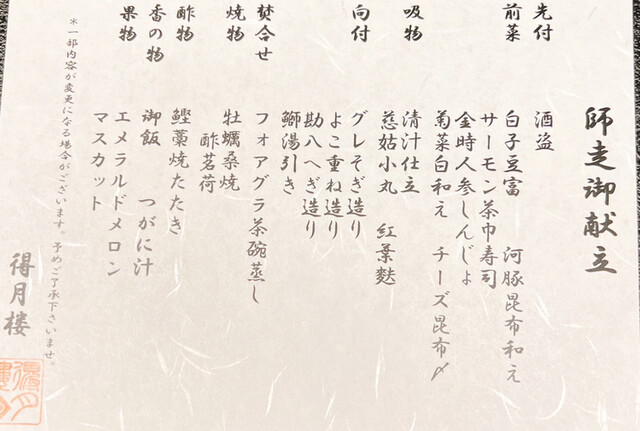 師走御献立
先付 酒盗
前菜 白子豆富 河豚昆布和え
サーモン茶巾寿司
金時人参しんじょ
菊菜白和え チーズ昆布〆
吸物 清汁仕立
慈姑小丸 紅葉麩
向付 グレそぎ造り
よこ重ね造り
勘八へぎ造り
鰤湯引き
焚合せ フォアグラ茶碗蒸し
焼物 牡蠣桑焼
酢茗荷
酢物 鰹藁焼たたき
香の物 御飯 つがに汁
果物 エメラルドメロン
マスカット
*一部内容が変更になる場合がございます。予めご了承下さいませ。
得月楼